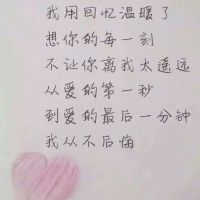 我用回忆温暖了
想你的每一刻
不让你离我太遥远
从爱的第一秒
到爱的最后一分钟
我从不后悔